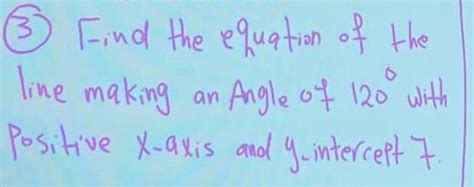 ③ Find the equation of the
line making an Angle of 120° with
Positive X-axis and y-intercept 7.